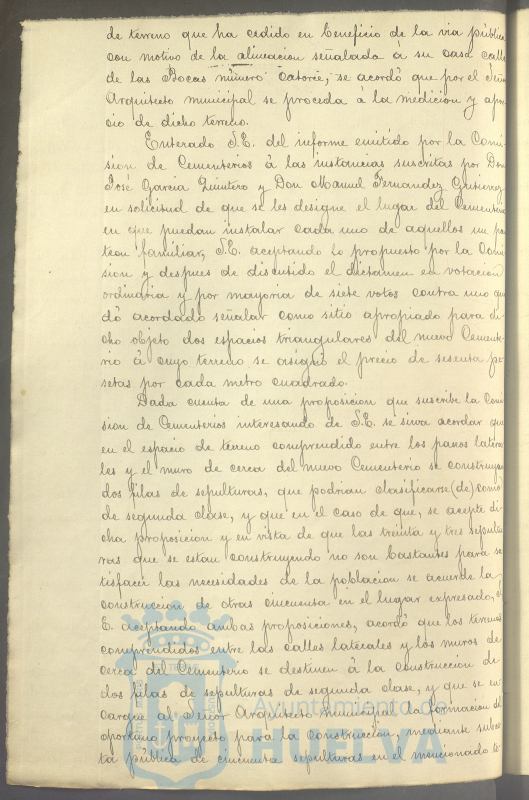 de terreno que ha cedido en beneficio de la via pública
con motivo de la alineacion señalada á su casa calle
de las Bocas número catorce, se acordó que por el Señor
Arquitecto municipal se proceda á la medicion y apre-
cio de dicho terreno.
Enterado S.E. del informe emitido por la Comi-
sion de Cementerios á las instancias suscritas por Don
José Garcia Quintero y Don Manuel Fernandez Gutierrez
en solicitud de que se les designe el lugar del Cementerio
en que puedan instalar cada uno de aquellos un pan
teon familiar, S.E. aceptando lo propuesto por la Comi
sion y despues de discutido el dictamen en votacion
ordinaria y por mayoria de siete votos contra uno que
dó acordado señalar como sitio apropiado para di
cho objeto dos espacios triangulares del nuevo Cemente-
rio á cuyo terreno se asignó el precio de sesenta pe
setas por cada metro cuadrado.
Dada cuenta de una proposicion que suscribe la Comi
sion de Cementerios interesando de S.E. se sirva acordar que
en el espacio de terreno comprendido entre los panos latera
les y el muro de cerca del nuevo Cementerio se construyan
dos filas de sepulturas, que podrian clasificarse (de) como
de segunda clase, y que en el caso de que, se acepte di
cha proposicion y en vista de que las treinta y tres sepultu
ras que se estan construyendo no son bastantes para sa
tisfacer las necesidades de la poblacion se acuerde la
construccion de otras cincuenta en el lugar expresado, S.
E. aceptando ambas proposiciones, acordó que los terrenos
comprendidos entre las calles laterales y los muros de
cerca del Cementerio se destinen á la construccion de
dos filas de sepulturas de segunda clase, y que se en
cargue al Señor Arquitecto municipal la formacion del
oportuno proyecto para la construccion, mediante subas
ta pública de cincuenta sepulturas en el mencionado te
Ayuntamiento de
HUELVA